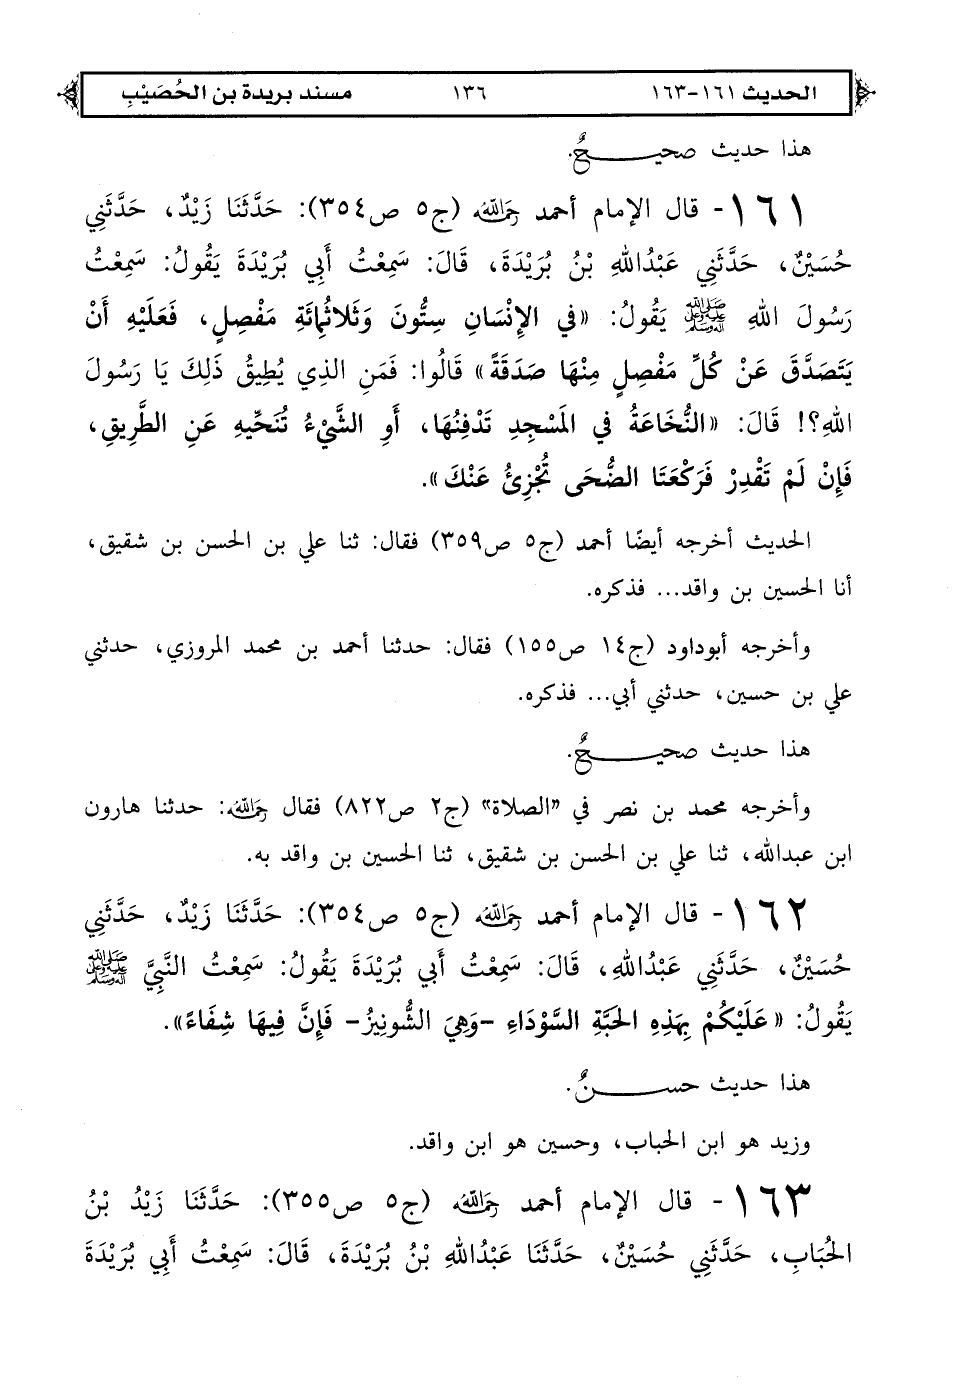 الحديث ١٦١-١٦٣ ١٣٦ مسند بريدة بن الحُصَيْبِ
هذا حديث صحيـــحٌ.
١٦١- قال الإمام أحمد رَحِمَهُ اللهُ (ج٥ ص٣٥٤): حَدَّثَنَا زَيْدٌ، حَدَّثَنِي
حُسَيْنٌ، حَدَّثَنِي عَبْدُاللهِ بْنُ بُرَيْدَةَ، قَالَ: سَمِعْتُ أَبِي بُرَيْدَةَ يَقُولُ: سَمِعْتُ
رَسُولَ اللهِ ﷺ يَقُولُ: «فِي الإِنْسَانِ سِتُّونَ وَثَلاثُمِائَةِ مَفْصِلٍ، فَعَلَيْهِ أَنْ
يَتَصَدَّقَ عَنْ كُلِّ مَفْصِلٍ مِنْهَا صَدَقَةً» قَالُوا: فَمَنِ الذِي يُطِيقُ ذَلِكَ يَا رَسُولَ
اللهِ؟! قَالَ: «النُّخَاعَةُ فِي المَسْجِدِ تَدْفِنُهَا، أَوِ الشَّيْءُ تُنَحِّيهِ عَنِ الطَّرِيقِ،
فَإِنْ لَمْ تَقْدِرْ فَرَكْعَتَا الضُّحَى تُجْزِئُ عَنْكَ».
الحديث أخرجه أيضًا أحمد (ج٥ ص٣٥٩) فقال: ثنا علي بن الحسن بن شقيق،
أنا الحسين بن واقد... فذكره.
وأخرجه أبوداود (ج١٤ ص١٥٥) فقال: حدثنا أحمد بن محمد المروزي، حدثني
علي بن حسين، حدثني أبي... فذكره.
هذا حديث صحيـــحٌ.
وأخرجه محمد بن نصر في «الصلاة» (ج٢ ص٨٢٢) فقال رَحِمَهُ اللهُ: حدثنا هارون
ابن عبدالله، ثنا علي بن الحسن بن شقيق، ثنا الحسين بن واقد به.
١٦٢- قال الإمام أحمد رَحِمَهُ اللهُ (ج٥ ص٣٥٤): حَدَّثَنَا زَيْدٌ، حَدَّثَنِي
حُسَيْنٌ، حَدَّثَنِي عَبْدُاللهِ، قَالَ: سَمِعْتُ أَبِي بُرَيْدَةَ يَقُولُ: سَمِعْتُ النَّبِيَّ ﷺ
يَقُولُ: «عَلَيْكُمْ بِهَذِهِ الحَبَّةِ السَّوْدَاءِ -وَهِيَ الشُّونِيزُ- فَإِنَّ فِيهَا شِفَاءً».
هذا حديث حســـنٌ.
وزيد هو ابن الحباب، وحسين هو ابن واقد.
١٦٣- قال الإمام أحمد رَحِمَهُ اللهُ (ج٥ ص٣٥٥): حَدَّثَنَا زَيْدُ بْنُ
الحُبَابِ، حَدَّثَنِي حُسَيْنٌ، حَدَّثَنَا عَبْدُاللهِ بْنُ بُرَيْدَةَ، قَالَ: سَمِعْتُ أَبِي بُرَيْدَةَ